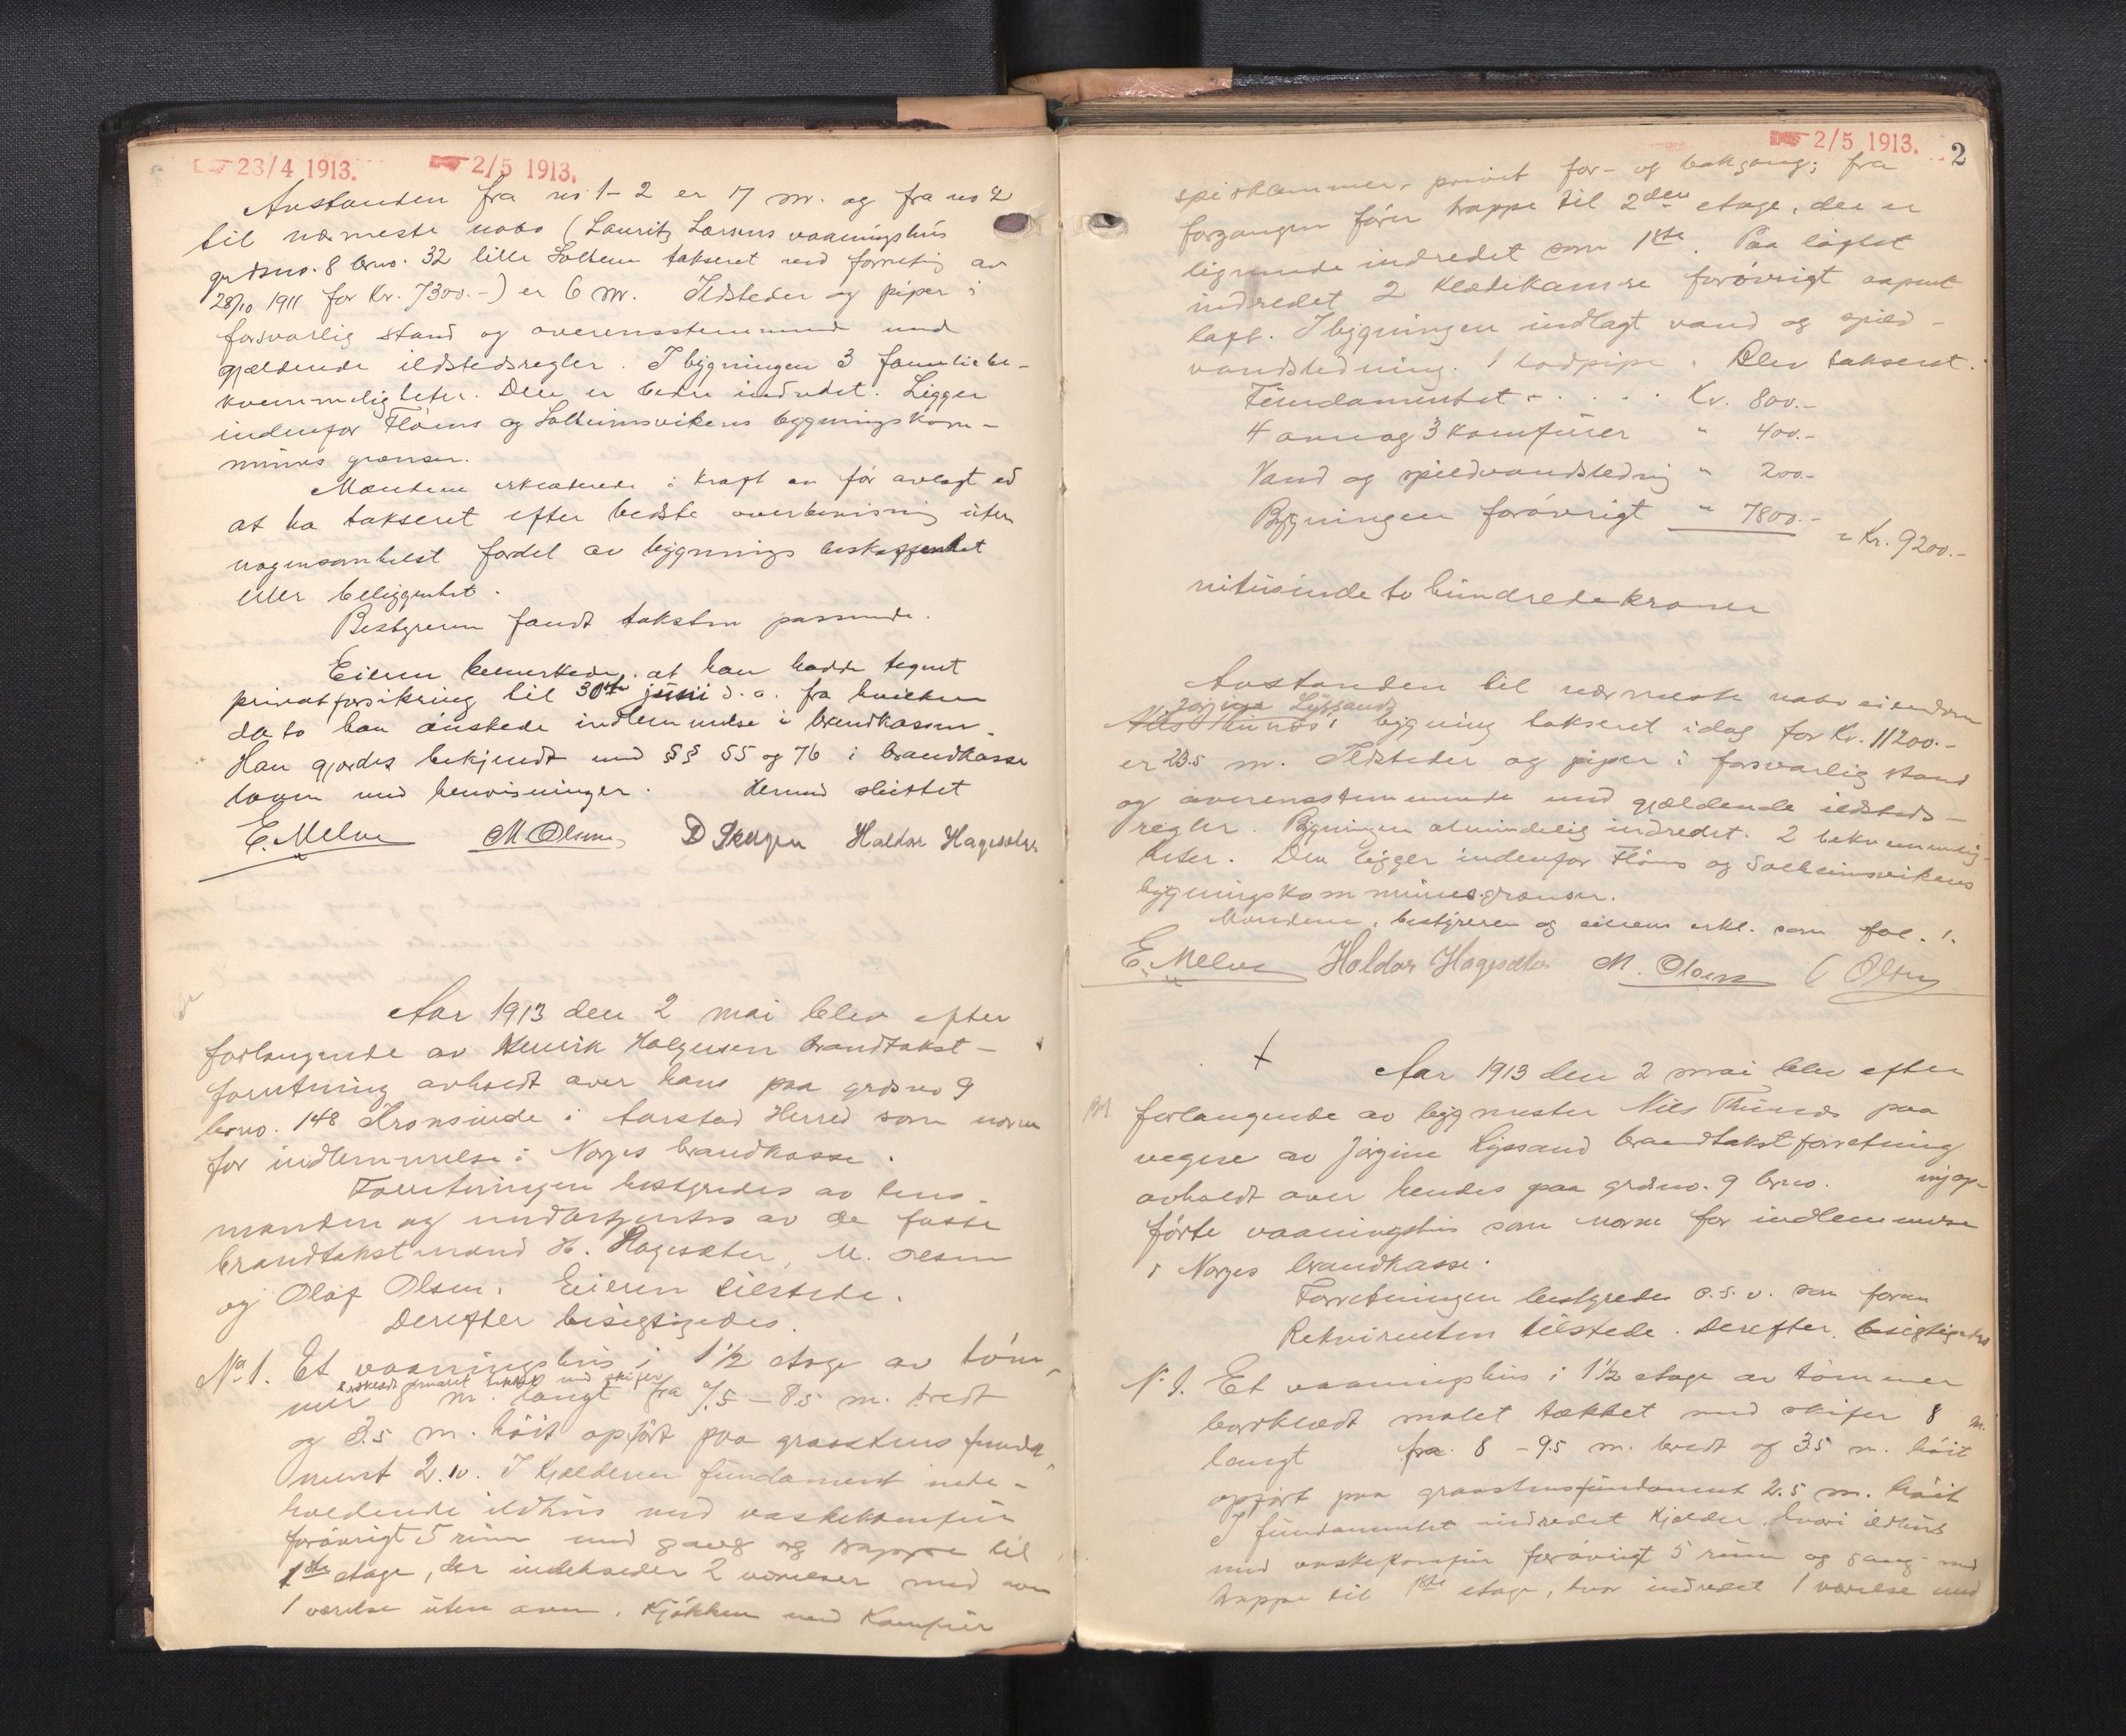 23/4 1913. 2/5 1913.
Avstanden fra no 1-2 er 17 m. og fra no 2
til nærmeste nabo (Lauritz Larsens vaaningshus
grdsno. 8 brno. 32 lille Solheim takseret ved forretning av
28/10 1911 for Kr. 7300.-) er 6 m. Ildsteder og piper i
forsvarlig stand og overensstemmende med
gjældende ildstedsregler. I bygningen 3 familiebe-
kvemmeligheter. Den er bedre indredet. Ligger
indenfor Fløens og Solheimsvikens bygningskom-
munes grænser.
Mændene erklærede i kraft av før avlagt ed
at ha takseret efter bedste overbevisning uten
nogensomhelst fordel av bygnings beskaffenhet
eller beliggenhet.
Bestyreren fandt taksten passende.
Eieren bemerkede, at han hadde tegnet
privatforsikring til 30te juni d. a. fra hvilken
dato han ønskede indlemmelse i brandkassen.
Han gjordes bekjendt med §§ 55 og 76 i brandkasse
loven med henvisninger. Hermed sluttet
E. Melve M Olsen, Haldor Hagesæter
Aar 1913 den 2 mai blev efter
forlangende av Henrik Holgersen brandtakst-
forretning avholdt over hans paa grdsno 9
brno. 148 Kronsminde i Aarstad Herred som norm
for indlemmelse i Norges brandkasse.
Forretningen bestyredes av lens-
manden og underskjøntes av de faste
brandtakstmænd H. Hagesæter, M. Olsen
og Olaf Olsen. Eieren tilstede.
Derefter besigtigedes.
No 1. Et vaaningshus i 1½ etage av tøm-
bordklædt malet tækket med skifer
mer 8 m. langt fra 7.5 - 8.5 m. bredt
og 3.5 m. høit opført paa graastens funda-
ment 2.10. I kjælderen fundament inde-
holdende ildhus med vaskekomfur
forøvrigt 5 rum med gang og trappe til
1ste etage, der indeholder 2 værelser med ovn
1 værelse uten ovn, kjøkken med komfur
2/5 1913. 2
spiskammer, privet for- og bakgang; fra
forgangen fører trappe til 2den etage, der er
lignende indredet som 1ste. Paa loftet
indredet 2 klædekamre forøvrigt aapent
loft. I bygningen indlagt vand og spild-
vandsledning. 1 lodpipe. Blev takseret:
Fundamentet . . . . Kr. 800.-
4 ovne og 3 komfurer " 400.-
Vand og spildvandsledning " 200.-
Bygningen forøvrigt " 7800.- = Kr. 9200.-
nitusinde to hundrede kroner
Avstanden til nærmeste nabo eiendom
Jørgine Lyssands
Nils Thunes' bygning takseret idag for Kr. 11200.-
er 23.5 m. Ildsteder og piper i forsvarlig stand
og overensstemmende med gjældende ildsteds-
regler. Bygningen almindelig indredet. 2 bekvemmelig-
heter. Den ligger indenfor Fløens og Solheimsvikens
bygningskommunes grænser.
Mændene, bestyreren og eierens erkl. som fol. 1.
E. Melve Haldor Hagesæter M. Olsen O Olsen
Aar 1913 den 2 mai blev efter
forlangende av bygmester Nils Thunes paa
vegne av Jørgine Lyssand brandtakstforretning
avholdt over hendes paa grdsno. 9 brno. nyop-
førte vaaningshus som norm for indlemmelse
i Norges brandkasse.
Forretningen bestyredes o.s.v. som foran
Rekvirenten tilstede. Derefter besigtigedes
No 1. Et vaaningshus i 1½ etage av tømmer
bordklædt malet tækket med skifer 8 m.
langt fra 8 - 9.5 m. bredt og 3.5 m. høit
opført paa graastensfundament 2.5 m. høit
I fundamentet indredet kjælder, hvori ildhus
med vaskekomfur forøvrigt 5 rum og gang med
trappe til 1ste etage, hvor indredet 1 værelse med